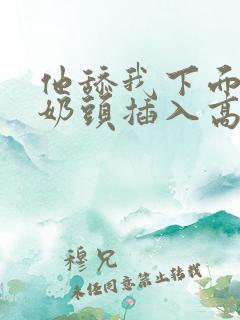 他舔我下面
奶頭插入高
穆兄
未任同意禁止转载